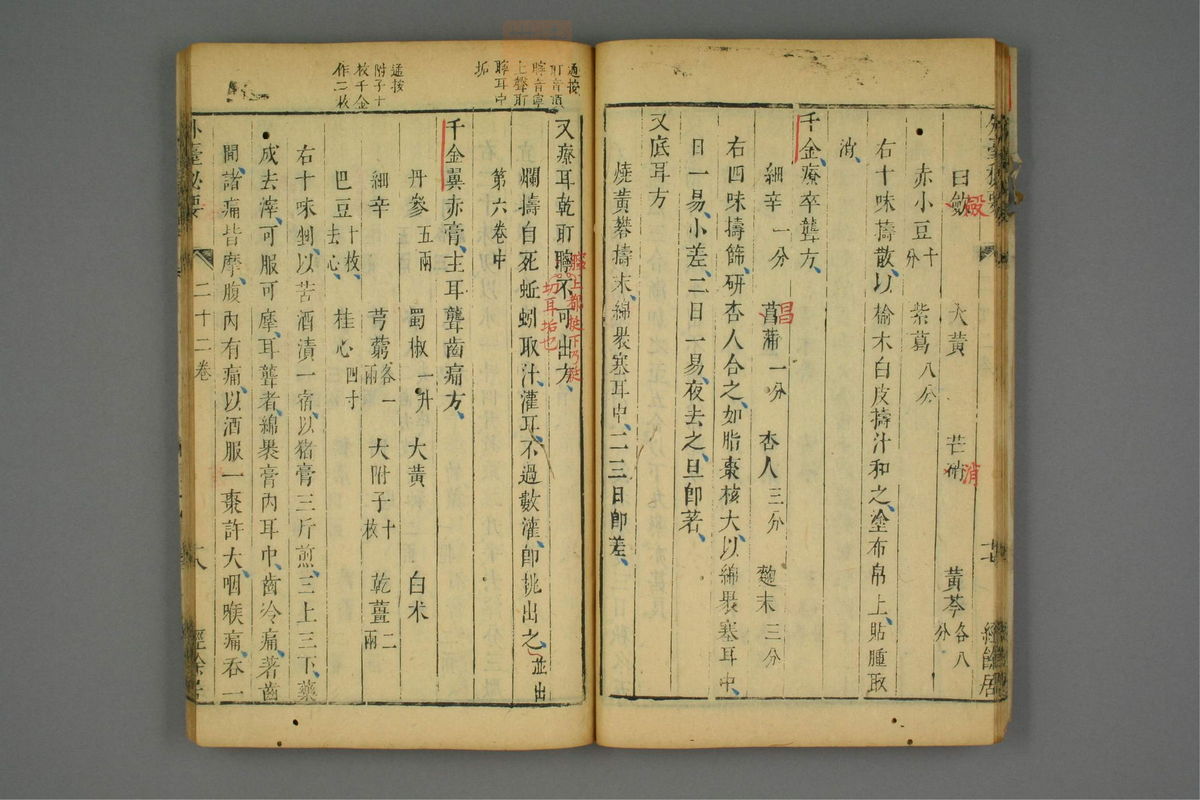 白斂
大黄
芒硝
黄芩各八分
赤小豆十分
紫葛八分
右十味擣散以榆木白皮擣汁和之塗布帛上貼腫取
消
千金療卒聾方
細辛一分
菖蒲一分
杏人三分
麴末三分
右四味擣篩研杏人合之如脂棗核大以綿褁塞耳中
日一易小差二日一易夜去之旦即著
又底耳方
燒黄礬擣末綿褁塞耳中二三日即差
又療耳乾耵聹不可出方
爛擣自死蚯蚓取汁灌耳不過數灌即挑出之並出
第六卷中
千金翼赤膏主耳聾齒痛方
丹參五兩
蜀椒一升
大黄
白术
細辛
芎藭各一兩
大附子十枚
乾薑二兩
巴豆十枚去心
桂心四寸
右十味剉以苦酒漬一宿以猪膏三斤煎三上三下藥
成去滓可服可摩耳聾者綿褁膏内耳中齒冷痛著齒
間諸痛皆摩腹内有痛以酒服一棗許大咽喉痛吞一
外臺秘要
二十二卷
大
經餘居
遥按
耵音頂
聹音寧
上聲耵
聹耳中
垢
遥按
附子十
枚千金
作二枚
昌
消